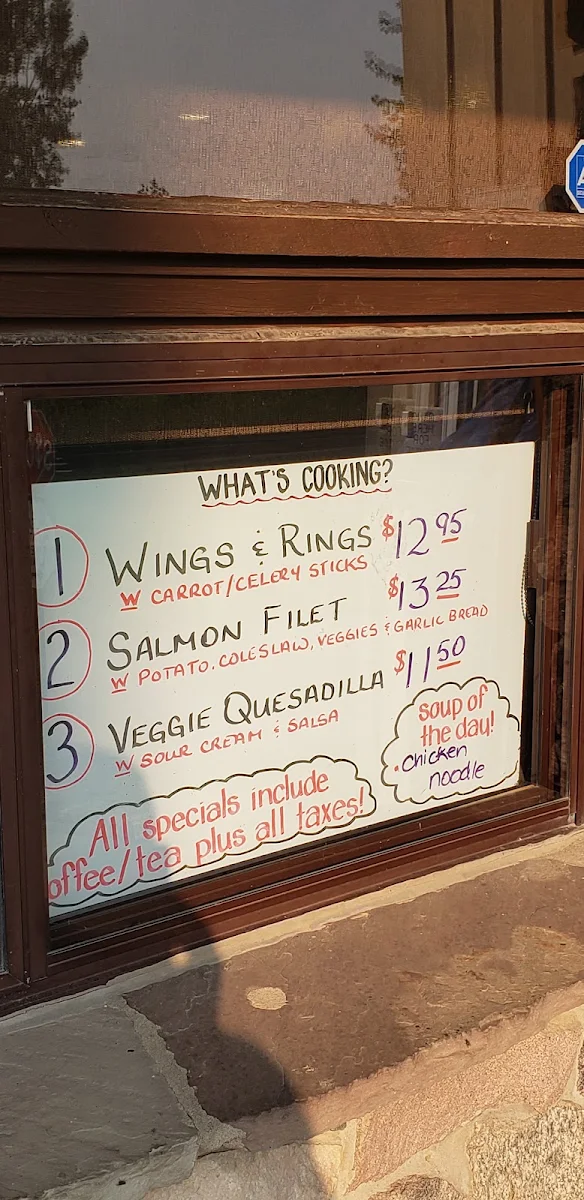 WHAT'S COOKING?
1 WINGS & RINGS $12 95
W CARROT/CELERY STICKS
2 SALMON FILET $13 25
W POTATO, COLESLAW, VEGGIES & GARLIC BREAD
3 VEGGIE QUESADILLA $11 50
W SOUR CREAM & SALSA
soup of
the day!
• chicken
noodle
All specials include
offee/tea plus all taxes!